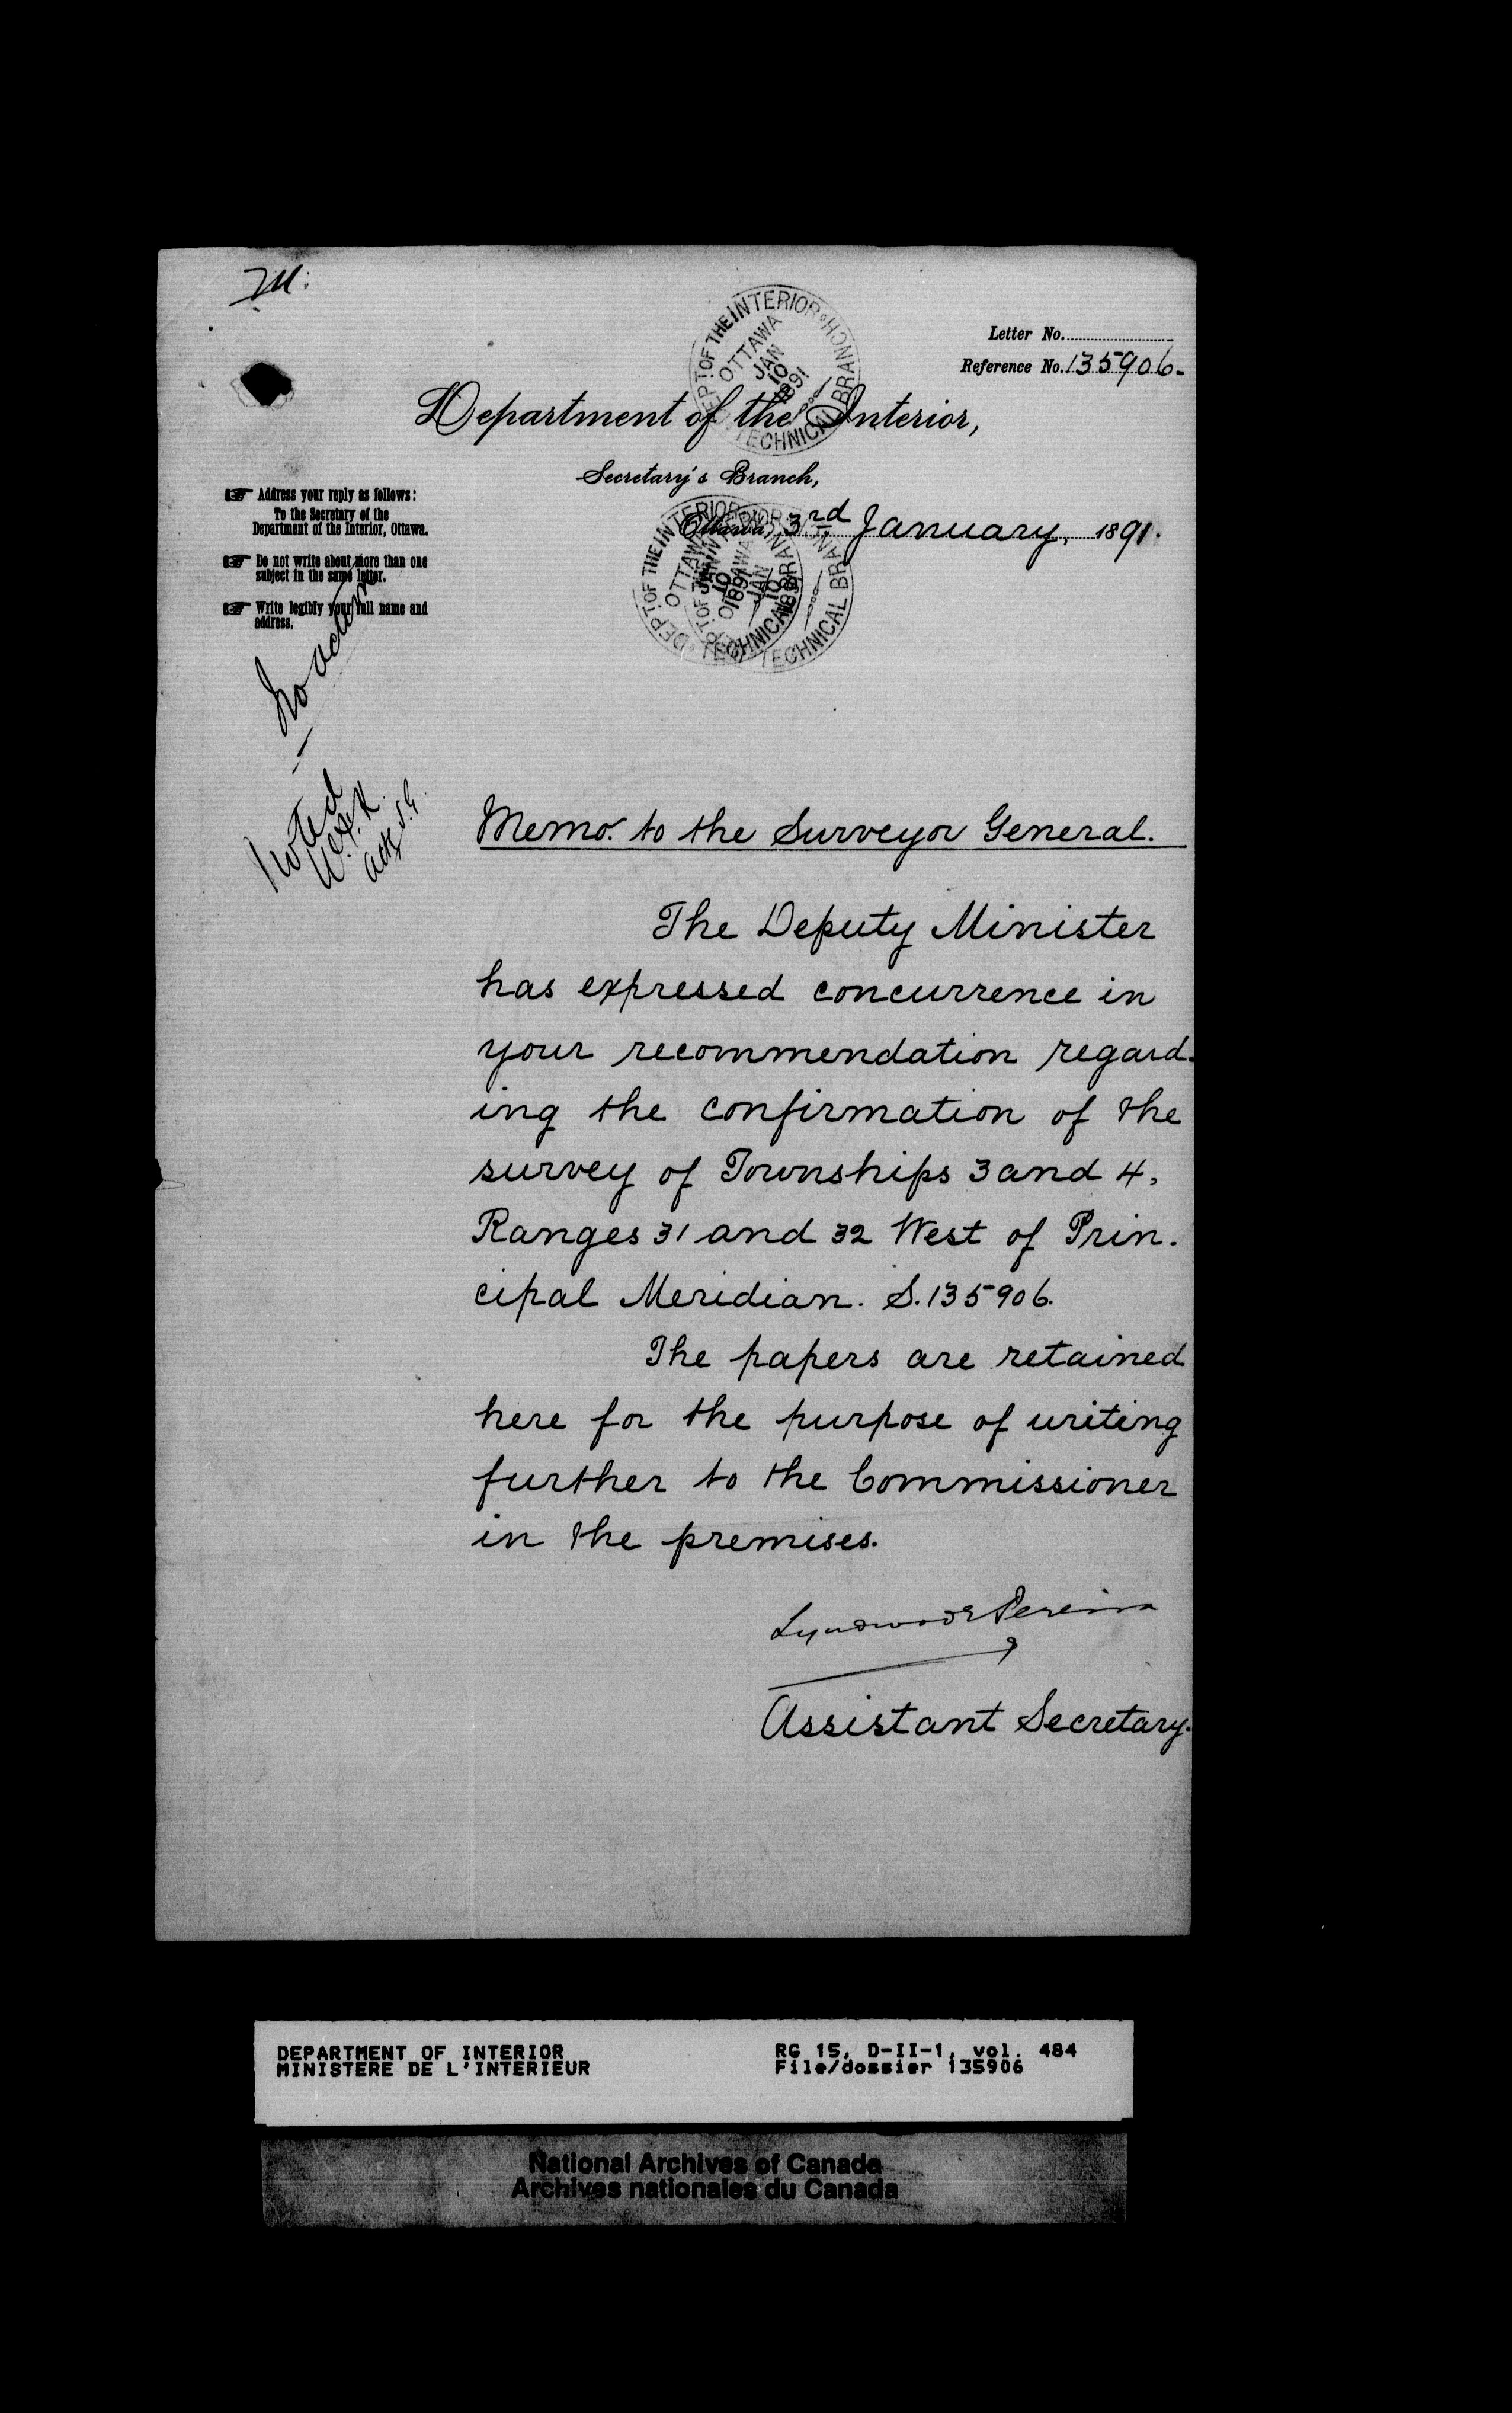 M.
Letter No.
Reference No. 135906.
DEPT. OF THE INTERIOR
OTTAWA
JAN
10
1891
TECHNICAL BRANCH
Department of the Interior,
Secretary's Branch,
Ottawa, 3rd January, 1891.
DEPT. OF THE INTERIOR
OTTAWA
JAN
10
1891
TECHNICAL BRANCH
OTTAWA
JAN
10
1891
TECHNICAL BRANCH
Address your reply as follows:
To the Secretary of the
Department of the Interior, Ottawa.
Do not write about more than one
subject in the same letter.
Write legibly your full name and
address.
No action
Noted
Memo. to the Surveyor General.
The Deputy Minister
has expressed concurrence in
your recommendation regard-
ing the confirmation of the
survey of Townships 3 and 4,
Ranges 31 and 32 West of Prin-
cipal Meridian. S. 135906.
The papers are retained
here for the purpose of writing
further to the Commissioner
in the premises.
Lyndwode Pereira
Assistant Secretary.
DEPARTMENT OF INTERIOR
MINISTERE DE L'INTERIEUR
RG 15, D-II-1, vol. 484
File/dossier 135906
National Archives of Canada
Archives nationales du Canada